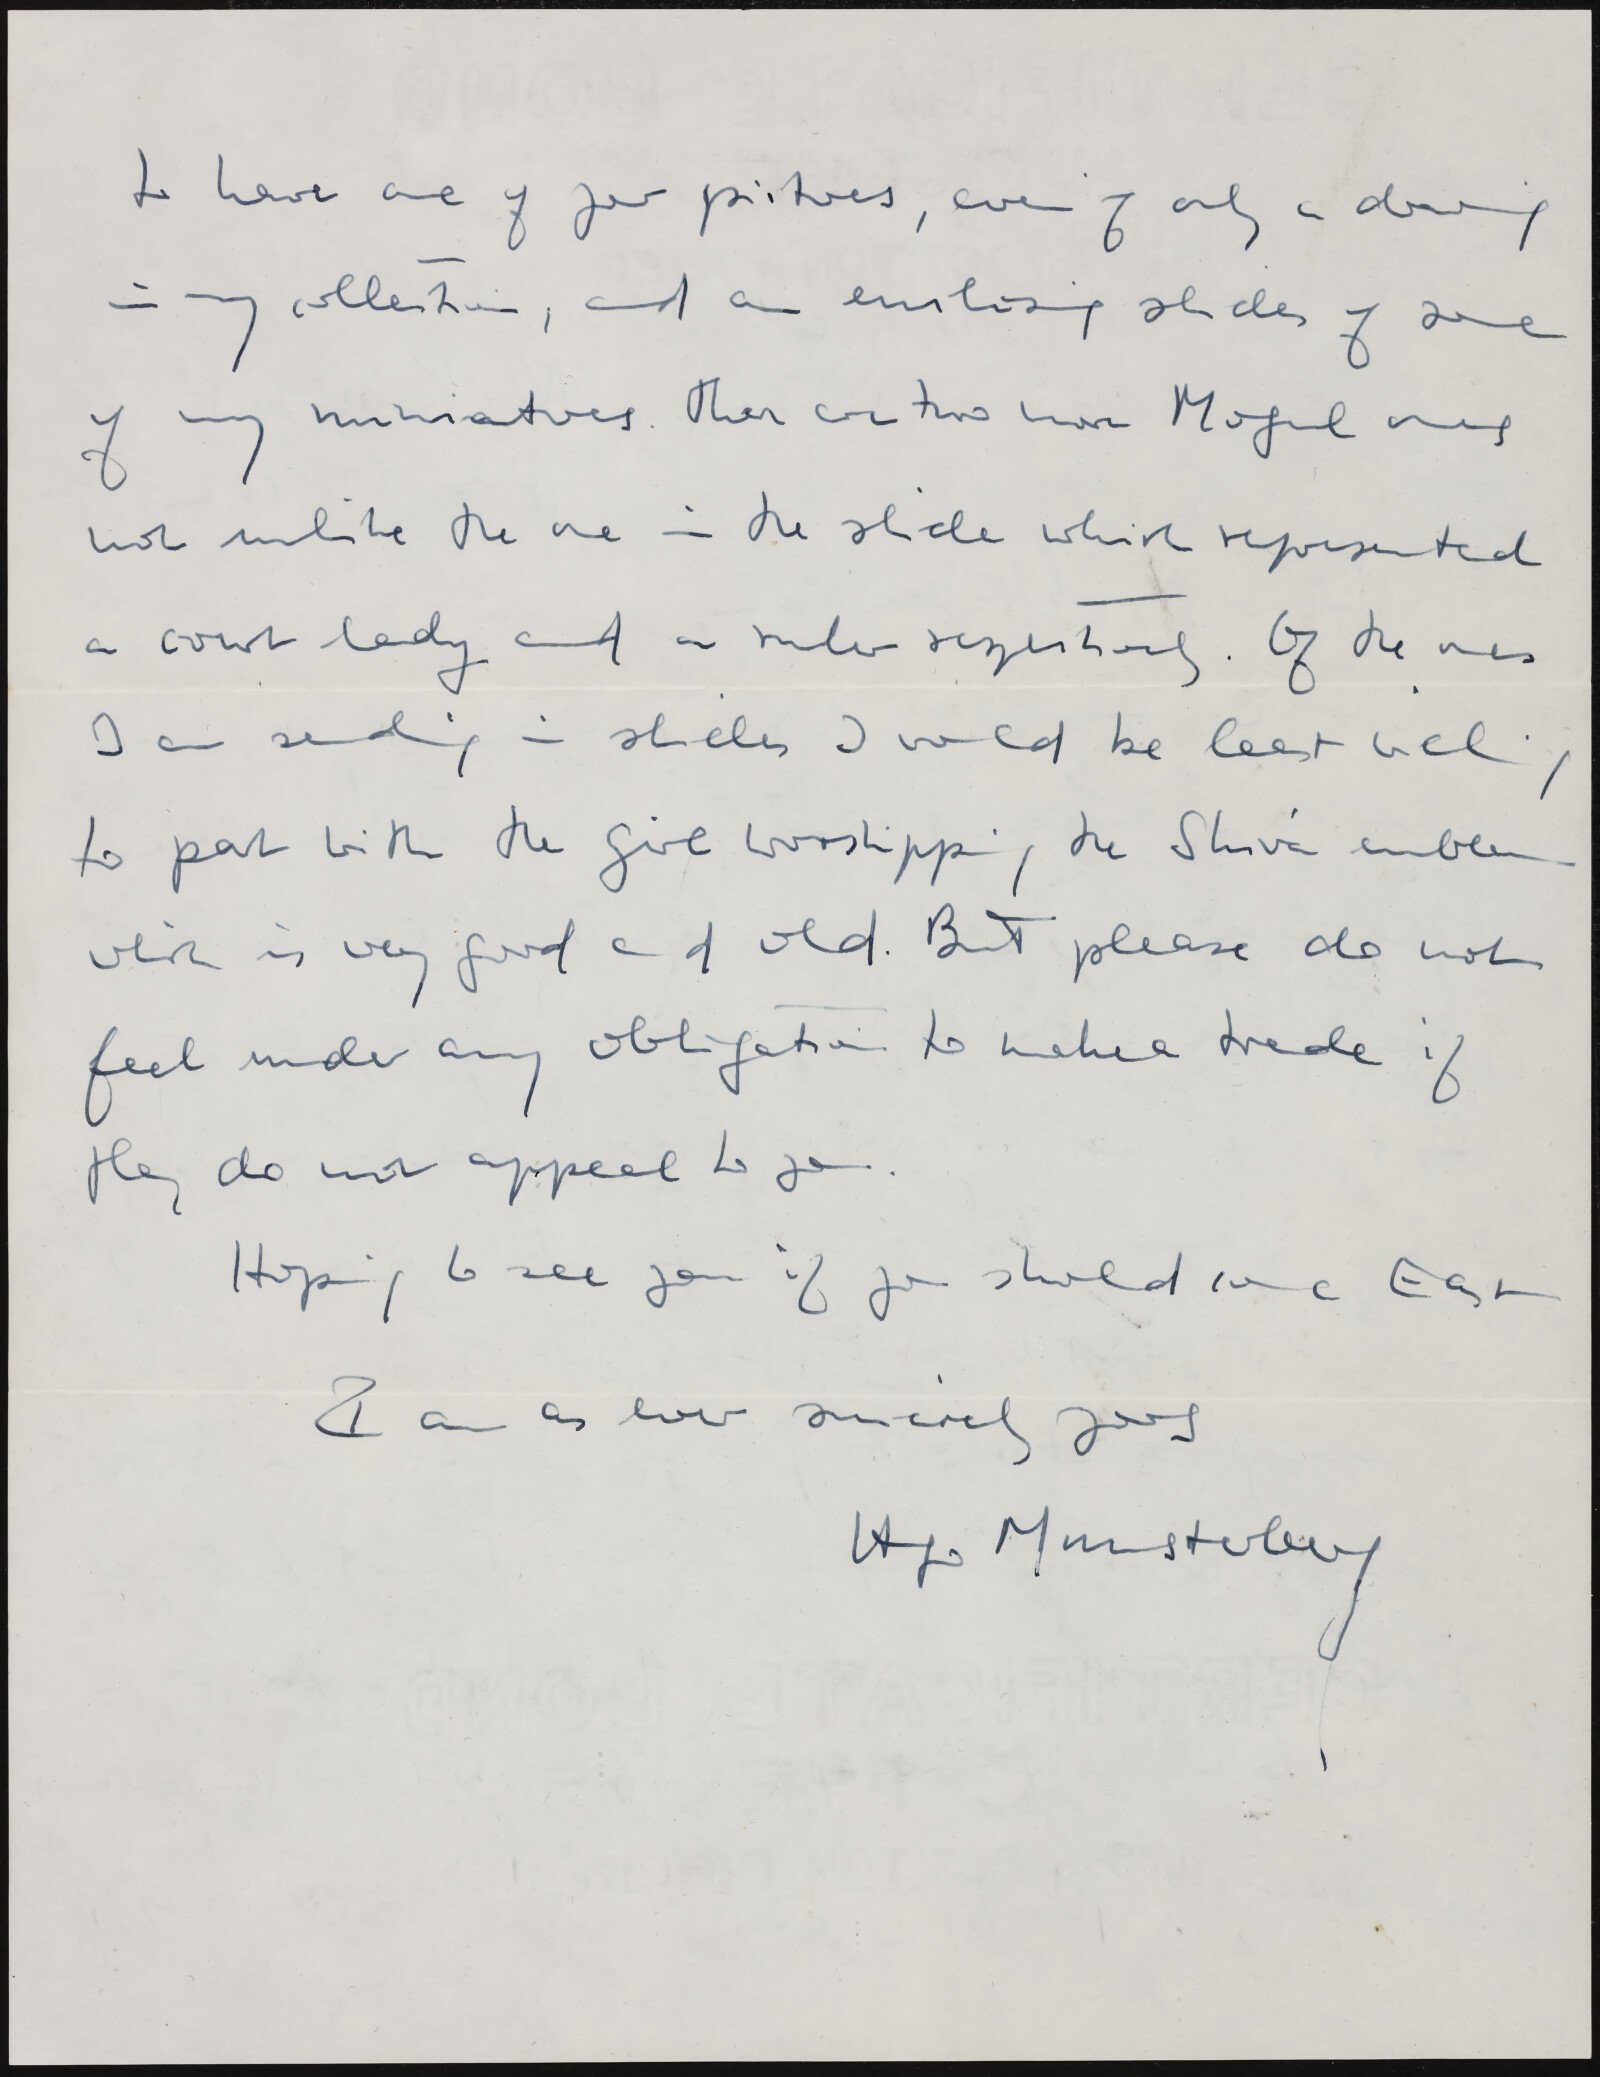 to have one of your pictures, even if only a drawing
in my collection, and am enclosing slides of some
of my miniatures. There are two more Mogul ones
not unlike the one in the slide which represented
a court lady and a ruler respectively. Of the ones
I am sending in slides I would be least willing
to part with the girl worshipping the Shiva emblem
which is very good and old. But please do not
feel under any obligation to make a trade if
they do not appeal to you.
Hoping to see you if you should come East
I am as ever sincerely yours
Hugo Munsterberg